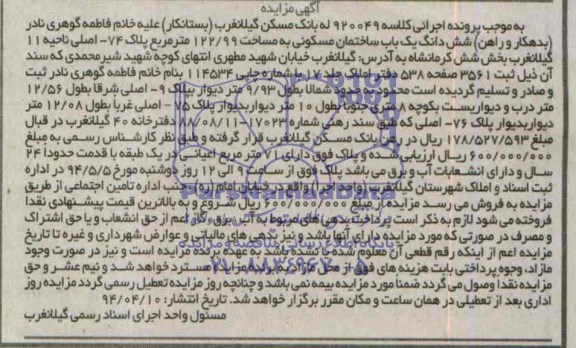 آگهی مزایده
به موجب پرونده اجرائی کلاسه ۹۲۰۰۴۹ له بانک مسکن گیلانغرب (بستانکار) علیه خانم فاطمه گوهری نادر
(بدهکار و راهن) شش دانگ یک باب ساختمان مسکونی به مساحت ۱۲۲/۹۹ مترمربع پلاک ۷۴- اصلی ناحیه ۱۱
گیلانغرب بخش شش کرمانشاه به آدرس: گیلانغرب خیابان شهید مطهری انتهای کوچه شهید شیرمحمدی که سند
آن ذیل ثبت ۳۵۶۱ صفحه ۵۳۸ دفتر املاک جلد ۱۷ با شماره چاپی ۱۱۴۵۳۴ بنام خانم فاطمه گوهری نادر ثبت
و صادر و تسلیم گردیده است محدود به حدود شمالا بطول ۹/۹۳ متر دیوار بپلاک ۹- اصلی شرقا بطول ۱۲/۵۶
متر درب و دیواریست بکوچه ۸ متری جنوبا بطول ۱۰ متر دیواربدیوار پلاک ۷۵- اصلی غربا بطول ۱۲/۰۸ متر
دیواربدیوار پلاک ۷۶- اصلی که طبق سند رهنی شماره ۱۷۰۲۳-۸۸/۰۸/۱۱ دفترخانه ۴۰ گیلانغرب در قبال
مبلغ ۱۷۸/۵۲۷/۵۹۳ ریال در رهن بانک مسکن گیلانغرب قرار گرفته و طبق نظر کارشناس رسمی به مبلغ
۶۰۰/۰۰۰/۰۰۰ ریال ارزیابی شده و پلاک فوق دارای ۷۱ متر مربع اعیانی در یک طبقه با قدمت حدودا ۲۴
سال و دارای انشعابات آب و برق می باشد پلاک فوق از ساعت ۹ الی ۱۲ روز دوشنبه مورخ ۹۴/۵/۵ در اداره
ثبت اسناد و املاک شهرستان گیلانغرب (واحد اجرا) واقع در خیابان امام (ره) جنب اداره تامین اجتماعی از طریق
مزایده به فروش می رسد مزایده از مبلغ ۶۰۰/۰۰۰/۰۰۰ ریال شروع و به بالاترین قیمت پیشنهادی نقدا
فروخته می شود لازم به ذکر است پرداخت بدهی های مربوط به آب، برق، گاز اعم از حق انشعاب و یا حق اشتراک
و مصرف در صورتی که مورد مزایده دارای آنها باشد و نیز بدهی های مالیاتی و عوارض شهرداری و غیره تا تاریخ
مزایده اعم از اینکه رقم قطعی آن معلوم شده یا نشده باشد به عهده برنده مزایده است و نیز در صورت وجود
مازاد، وجوه پرداختی بابت هزینه های فوق از محل مازاد به برنده مزایده مسترد خواهد شد و نیم عشر و حق
مزایده نقدا وصول می گردد ضمنا مورد مزایده بیمه نمی باشد و چنانچه روز مزایده تعطیل رسمی گردد مزایده روز
اداری بعد از تعطیلی در همان ساعت و مکان مقرر برگزار خواهد شد. تاریخ انتشار: ۹۴/۰۴/۱۰
مسئول واحد اجرای اسناد رسمی گیلانغرب